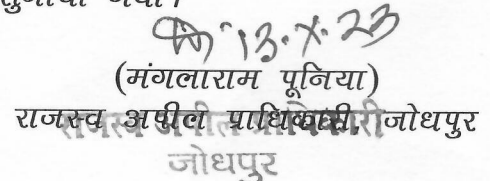 13.X.23
(मंगलाराम पूनिया)
राजस्व अपील प्राधिकारी, जोधपुर
राजस्व अपील प्राधिकारी
जोधपुर